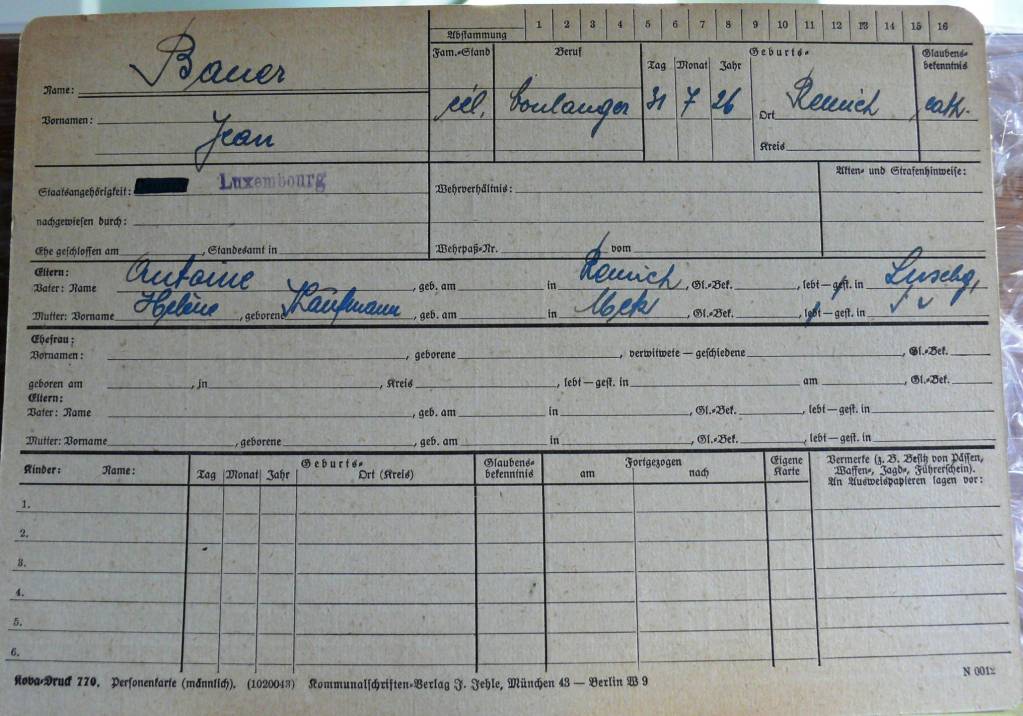 Abstammung 1 2 3 4 5 6 7 8 9 10 11 12 13 14 15 16
Name: Bauer
Vornamen: Jean
Fam.=Stand Beruf Geburts= Glaubens=
Tag Monat Jahr bekenntnis
cél. boulanger 31 7 26 Ort Remich cath.
Kreis
Staatsangehörigkeit: Luxembourg Wehrverhältnis: Akten= und Strafenhinweise:
nachgewiesen durch:
Ehe geschlossen am , Standesamt in Wehrpaß=Nr. vom
Eltern:
Vater: Name Antoine , geb. am in Remich , Gl.=Bek. , lebt—gest. in
Mutter: Vorname Helène , geborene Kaufmann , geb. am in , Gl.=Bek. , lebt—gest. in
Ehefrau:
Vornamen: , geborene , verwitwete — geschiedene , Gl.=Bek.
geboren am , in , Kreis , lebt—gest. in am , Gl.=Bek.
Eltern:
Vater: Name , geb. am in , Gl.=Bek. , lebt—gest. in
Mutter: Vorname , geborene , geb. am in , Gl.=Bek. , lebt—gest. in
Kinder: Name: Geburts= Glaubens= Fortgezogen Eigene Vermerke (z. B. Besitz von Pässen,
Tag Monat Jahr Ort (Kreis) bekenntnis am nach Karte Waffen=, Jagd=, Führerschein).
An Ausweispapieren lagen vor:
1.
2.
3.
4.
5.
6.
Kova=Druck 770. Personenkarte (männlich). (1020043) Kommunalschriften=Verlag J. Jehle, München 43 — Berlin W 9
N 0012